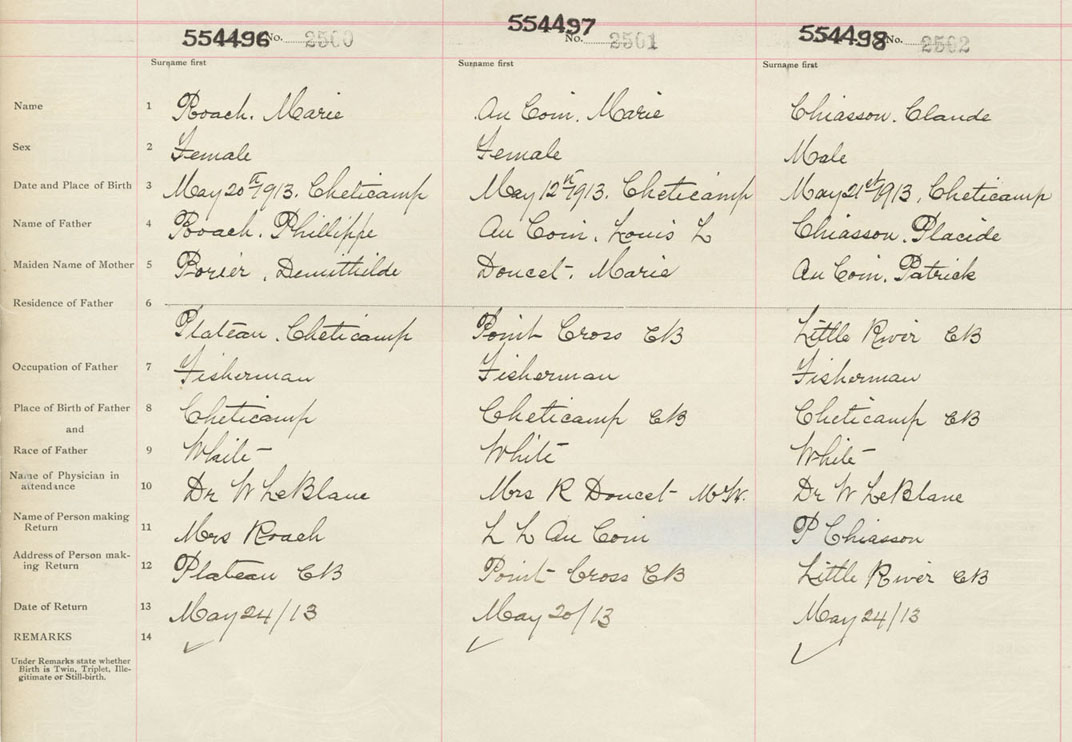 554496 No. 2500 554497 No. 2501 554498 No. 2502
Surname first Surname first Surname first
Name 1 Roach. Marie Au Coin. Marie Chiasson. Claude
Sex 2 Female Female Male
Date and Place of Birth 3 May 20th 1913. Cheticamp May 12th 1913. Cheticamp May 21st 1913. Cheticamp
Name of Father 4 Roach. Phillippe Au Coin. Louis L Chiasson. Placide
Maiden Name of Mother 5 Porier, Demithilde Doucet. Marie Au Coin. Patrick
Residence of Father 6
Plateau. Cheticamp Point Cross CB Little River CB
Occupation of Father 7 Fisherman Fisherman Fisherman
Place of Birth of Father 8 Cheticamp Cheticamp CB Cheticamp CB
and
Race of Father 9 White White White
Name of Physician in
attendance 10 Dr W LeBlanc Mrs R Doucet M.W. Dr W LeBlanc
Name of Person making
Return 11 Mrs Roach L L Au Coin P Chiasson
Address of Person mak-
ing Return 12 Plateau CB Point Cross CB Little River CB
Date of Return 13 May 24/13 May 20/13 May 24/13
REMARKS 14
Under Remarks state whether
Birth is Twin, Triplet, Ille-
gitimate or Still-birth.